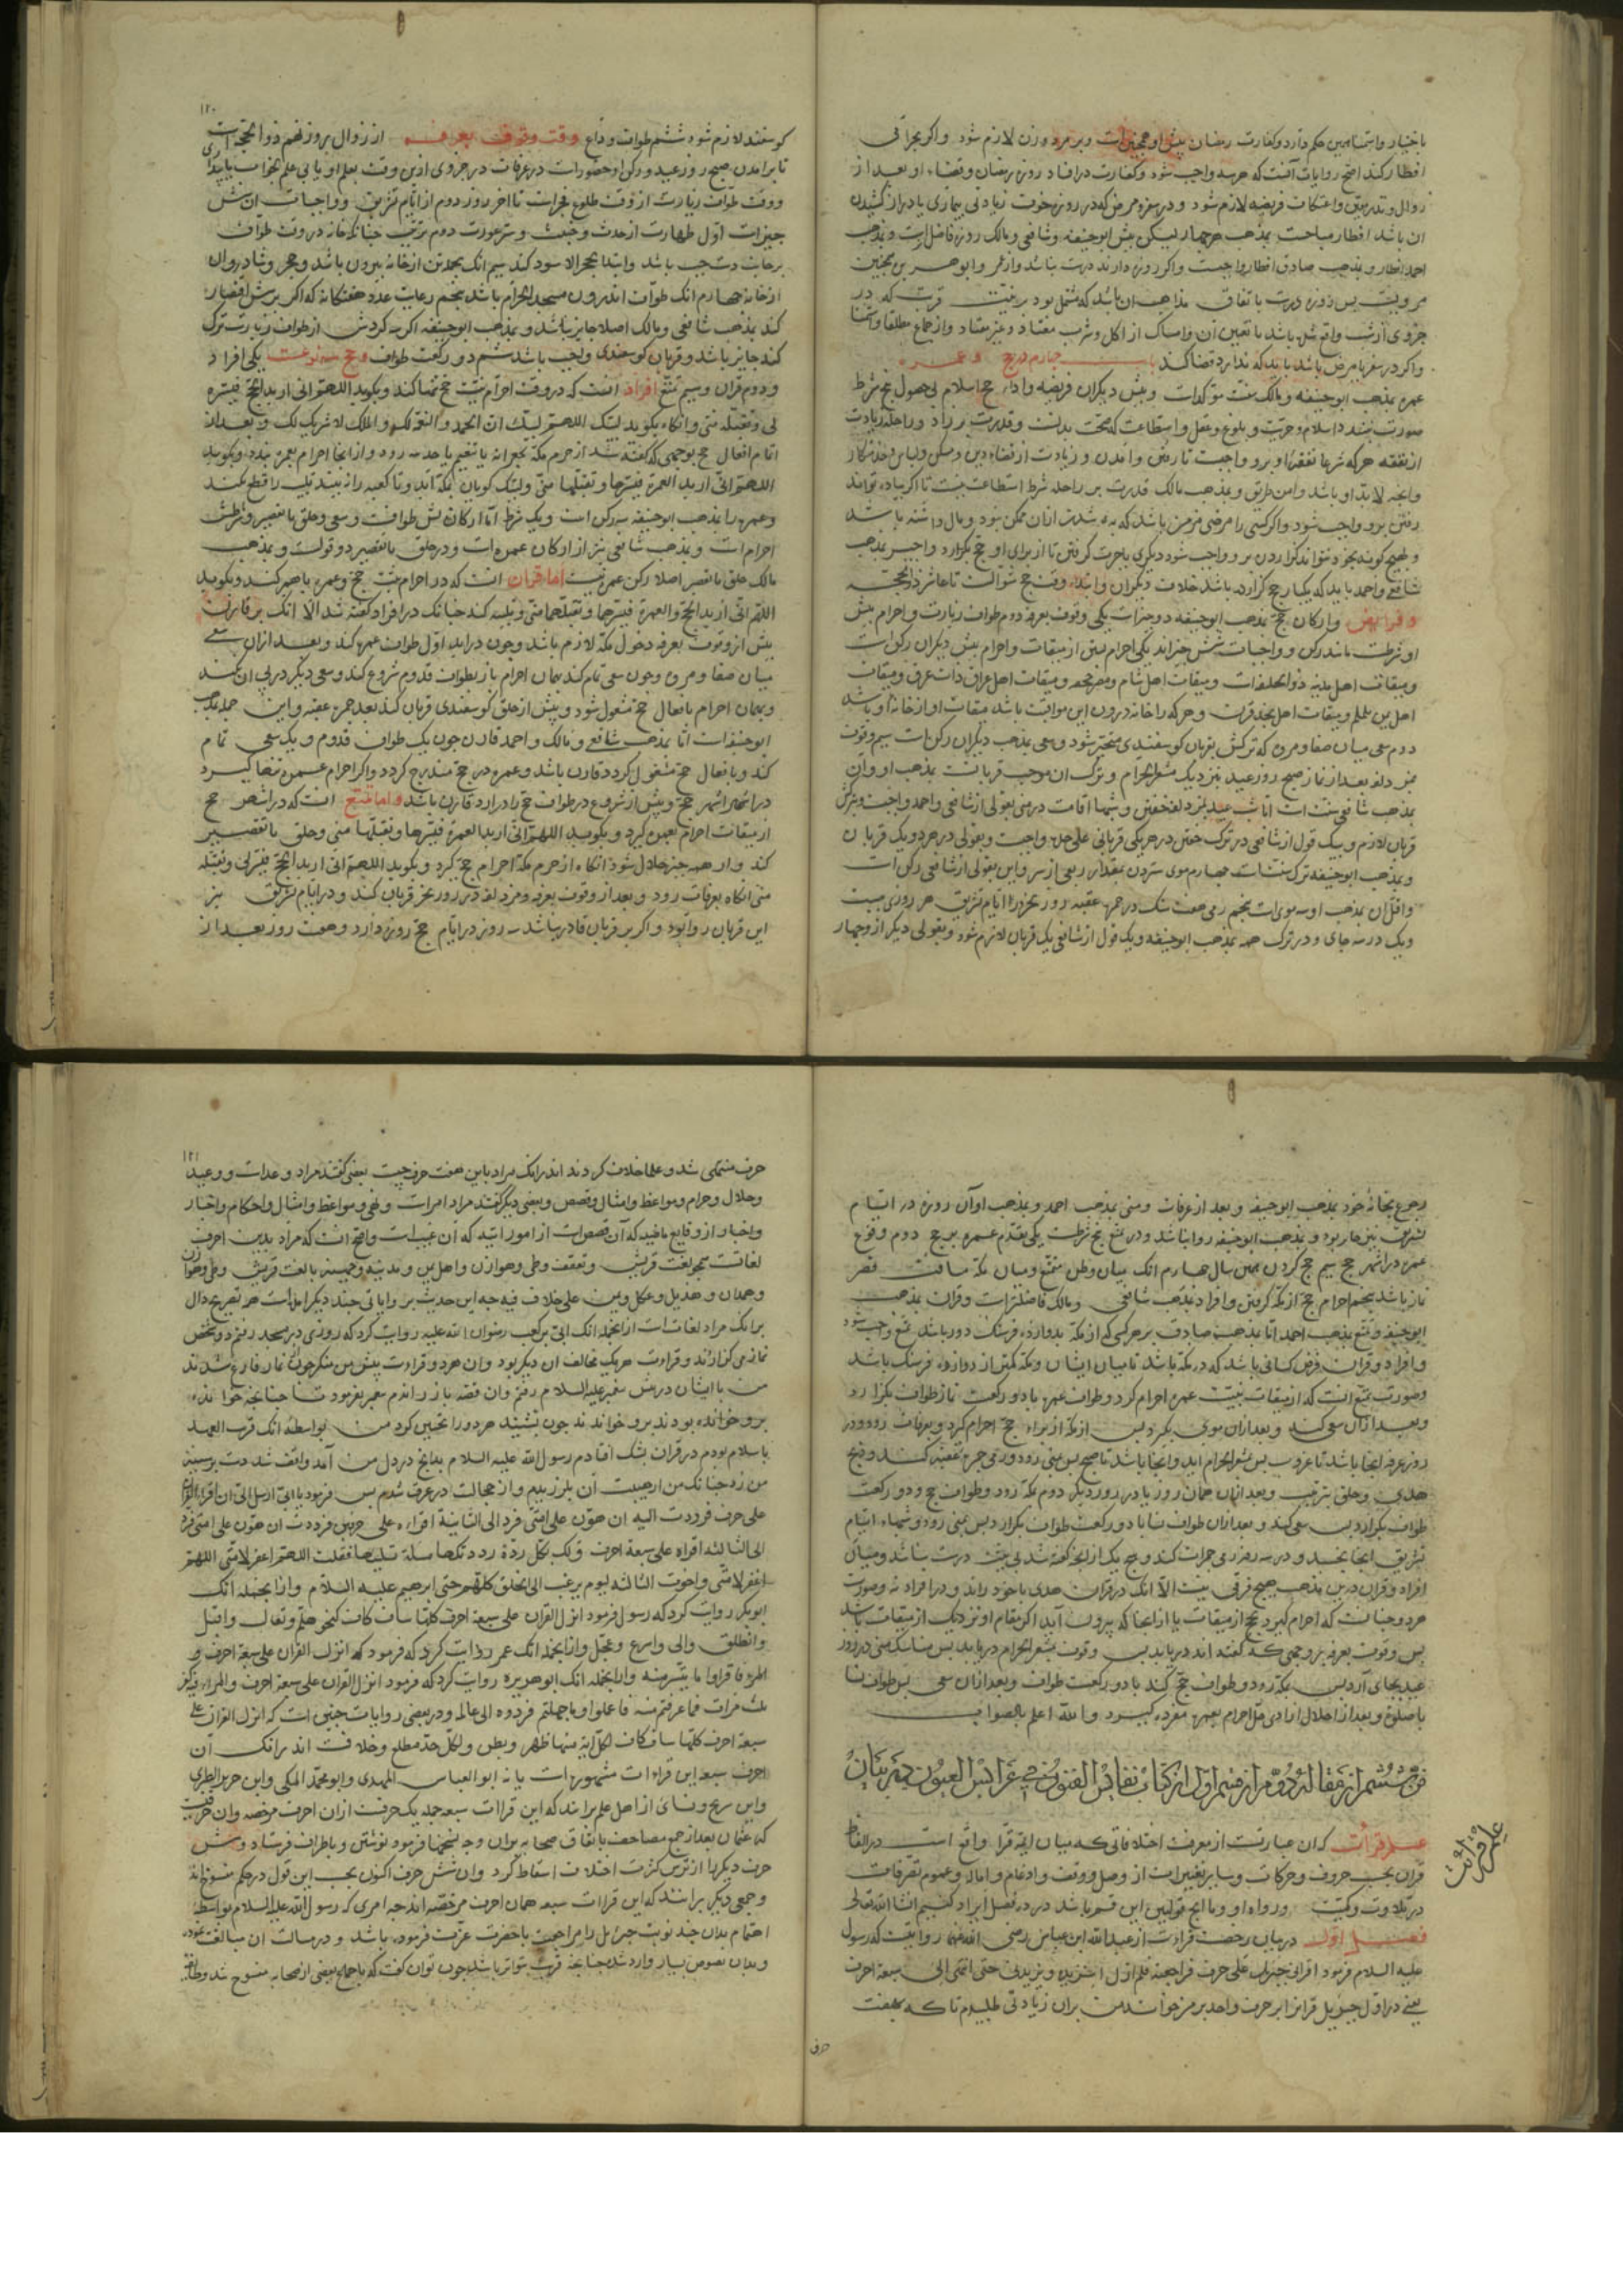 باختیار واستمنا همین حکم دارد وکفارت رمضان پیش او همچنین است وبر مرد وزن لازم شود واکر بجزا
افطار کند اصح روایات آنست که هر سه واجب شود وکفارت در افساد روزه رمضان وقضاء او بعد از
زوال ونذر معین واعتکاف فریضه لازم شود ودر سفر ومرض که در روزه خوف زیادتی بیماری یا دراز کشیدن
ان باشد افطار مباحست بمذهب هر چهار لیکن پیش ابوحنیفه وشافعی ومالک روزه فاضلتر است وبمذهب
احمد افطار وبمذهب صادق افطار واجبست واکر روزه دارند درست نباشد واز عمر وابو هریره همچنین
مرویست پس روزه درست باتفاق مذاهب ان باشد که مشتمل بود بر نیت قربت که در
جزوی از شب واقع شده باشد با تعیین ان وامساک از اکل وشرب معتاد وغیر معتاد واز جماع مطلقا واستمنا
واکر در سفر یا مرض باشد باید که ندارد وقضا کند باب چهارم در حج وعمره
عمره بمذهب ابوحنیفه ومالک سنت مؤکد است وپیش دیکران فریضه واداء حج اسلام بی حصول پنج شرط
صورت نبندد اسلام وحریت وبلوغ وعقل واستطاعت که صحت بدنست وقدرت بر زاد وراحله زیادت
از نفقه هر که شرعا نفقه او برو واجبست تا رفتن وآمدن وزیادت از قضاء دین ومسکن ولباس وخدمتکار
وانچه لابد او باشد وامن طریق وبمذهب مالک قدرت بر راحله شرط استطاعت نیست تا اکر پیاده تواند
رفتن برو واجب شود واکر کسی را مرضی مزمن باشد که به شدن ازان ممکن نبود ومال داشته باشد
وبهیچ کونه بخود نتواند کزاردن برو واجب شود دیکری باجرت کرفتن تا از برای او حج بکزارد واجیر بمذهب
شافعی واحمد باید که یکبار حج کزارده باشد بخلاف دیکران وابتداء وقت حج شوالست تا عاشر ذوالحجه
وفرایض وارکان حج بمذهب ابوحنیفه دو چیز است یکی وقوف بعرفه دوم طواف زیارت واحرام پیش
او شرطست مانند رکن وواجبات شش چیزاند یکی احرام بستن از میقات واحرام پیش دیکران رکن است
ومیقات اهل مدینه ذوالحلیفه است ومیقات اهل شام ومصر جحفه ومیقات اهل عراق ذات عرق ومیقات
اهل یمن یلملم ومیقات اهل نجد قرنست وهر که را خانه در ون این مواقیت باشد میقات او از خانه او باشد
دوم سعی میان صفا ومروه که ترکش بقربان کوسفندی منجبر شود وسعی بمذهب دیکران رکن است سیم وقوف
بمزدلفه بعد از نماز صبح روز عید نزدیک مشعر الحرام وترک ان موجب قربانست بمذهب او وان
بمذهب شافعی سنت است اما شب عید بمزدلفه خفتن وشبها اقامت در منی بقولی از شافعی واحمد واجبست وبترکش
قربان لازم وبیک قول از شافعی در ترک خفتن در هر یکی قربانی علی حده واجبست وبقولی در هر دو یک قربان
وبمذهب ابوحنیفه ترک سنتست چهارم موی ستردن بمقدار ربعی از سر واین بقولی از شافعی رکن است
واقل ان بمذهب او سه موی است پنجم رمی هفت سنک در جمره عقبه روز نحر در ایام تشریق هر روزی بیست
ویک در سه جای ودر ترک همه بمذهب ابوحنیفه ویک قول از شافعی یک قربان لازم شود وبقولی دیکر ازو چهار
۱۲۰
کوسفند لازم شود ششم طواف وداع وقت وقوف بعرفه از زوال روز نهم ذوالحجه است
تا برامدن صبح روز عید ورکن او حضور است در عرفات در جزوی ازین وقت بعلم او یا بی علم بخواب یا بیداری
ووقت طواف زیارت از وقت طلوع فجر است تا اخر روز دوم از ایام تشریق وواجبات ان شش
چیز است اول طهارت از حدث وخبث وستر عورت دوم ترتیب چنانکه خانه در وقت طواف
بر جانب دست چپ باشد وابتدا بحجر الاسود کند سیم انک بجمله تن از خانه بیرون باشد وحجر وشاذروان
از خانه چهارم انک طواف اندرون مسجد الحرام باشد پنجم رعایت عدد هفتکانه که اکر بر شش اقتصار
کند بمذهب شافعی ومالک اصلا جایز نباشد وبمذهب ابوحنیفه اکر سه کردش از طواف زیارت ترک
کند جایز باشد وقربان کوسفندی واجب باشد ششم دو رکعت طواف وحج سه نوعست یکی افراد
ودوم قران وسیم تمتع افراد انست که در وقت احرام نیت حج تنها کند وبکوید اللهم انی ارید الحج فیسره
لی وتقبله منی وانکاه بکوید لبیک اللهم لبیک ان الحمد والنعمة لک والملک لا شریک لک وبعد از
اتمام افعال حج بوجهی که کفته شد از حرم مکه بجعرانه یا تنعیم یا حدیبیه رود وازانجا احرام بعمره بندد وبکوید
اللهم انی ارید العمرة فیسرها وتقبلها منی ولبیک کویان بمکه آید وتا کعبه را نبیند تلبیه را قطع نکند
وعمره را بمذهب ابوحنیفه سه رکن است ویک شرط اما ارکان پس طوافست وسعی وحلق یا تقصیر وشرطش
احرام است وبمذهب شافعی نیز از ارکان عمره است ودر حلق یا تقصیر دو قولست وبمذهب
مالک حلق یا تقصیر اصلا رکن عمره نیست اما قران انست که در احرام نیت حج وعمره با هم کند وبکوید
اللهم انی ارید الحج والعمرة فیسرهما وتقبلهما منی وتلبیه کند چنانک در افراد کفته شد الا انک بر قارنست
پیش از وقوف بعرفه دخول مکه لازم باشد وچون دراید اول طواف عمره کند وبعد ازان سعی
میان صفا ومروه وچون سعی تمام کند بهمان احرام باز بطواف قدوم شروع کند وسعی دیکر در پی ان کند
وبهمان احرام بافعال حج مشغول شود وپیش از حلق کوسفندی قربان کند بعد جمره عقبه واین جمله بمذهب
ابوحنیفه است اما بمذهب شافعی ومالک واحمد قارن چون یک طواف قدوم ویک سعی تمام
کند وبافعال حج مشغول کردد قارن باشد وعمره در حج مندرج کردد واکر احرام عمره تنها کیرد
در اشهر حج وپیش از شروع در طواف حج را درارد قارن باشد واما تمتع انست که در اشهر حج
از میقات احرام بعمره کیرد وبکوید اللهم انی ارید العمرة فیسرها وتقبلها منی وحلق یا تقصیر
کند واز همه چیز حلال شود انکاه از حرم مکه احرام حج کیرد وبکوید اللهم انی ارید الحج فیسر لی وتقبله
منی انکاه بعرفات رود وبعد از وقوف بعرفه ومزدلفه در روز نحر قربان کند ودر ایام تشریق نیز
این قربان روا بود واکر بر قربان قادر نباشد سه روز در ایام حج روزه دارد وهفت روز بعد از
رجوع بخانه خود بمذهب ابوحنیفه وبعد از عرفات ومنی بمذهب احمد وبمذهب او آن روزه در ایام
تشریق نیز جایز بود وبمذهب ابوحنیفه روا نباشد ودر تمتع پنج شرطست یکی تقدیم عمره بر حج دوم وقوع
عمره در اشهر حج سیم حج کردن همین سال چهارم انک میان وطن متمتع ومیان مکه مسافت قصر
نماز باشد پنجم احرام حج از مکه کرفتن وافراد بمذهب شافعی ومالک فاضلتر است وقران بمذهب
ابوحنیفه وتمتع بمذهب احمد اما بمذهب صادق بر هر کسی که از مکه بدوازده فرسنک دور باشد تمتع واجب شود
وافراد وقران فرض کسانی باشد که در مکه باشد تا میان ایشان ومکه کمتر از دوازده فرسنک باشد
وصورت تمتع انست که از میقات بنیت عمره احرام کیرد وطواف عمره با دو رکعت نماز طواف بکزارد
وبعد ازان سعی کند وبعد ازان موی بکیرد پس از مکه از براء حج احرام کیرد وبعرفات رود ودر
روز عرفه انجا باشد تا غروب پس بمشعر الحرام آید وانجا باشد تا صبح پس بمنی رود ورمی جمره عقبه کند وذبح
هدی وحلق بترتیب وبعد ازان همان روز یا در روز دیکر دوم بمکه رود وطواف حج ودو رکعت
طواف بکزارد پس سعی کند وبعد ازان طواف نسا با دو رکعت طواف بکزارد پس بمنی رود وشبهاء ایام
تشریق انجا بخسبد ودر سه روز رمی جمرات کند وهیچ یک از انچه کفته شد بی نیت درست نباشد ومیان
افراد وقران درین مذهب هیچ فرقی نیست الا انک در قران هدی با خود راند ودر افراد نه وصورت
هر دو چنانست که احرام کیرد بحج از میقات یا ازانجا که بیرون آید اکر مقام او نزدیک از میقات باشد
پس وقوف بعرفه بر وجهی که کفته اند دریابد پس وقوف بمشعر الحرام دریابد پس مناسک منی در روز
عید بجای آرد پس بمکه رود وطواف حج کند با دو رکعت طواف وبعد ازان سعی پس طواف نسا
با صلوة وبعد از احلال از ادنی حل احرام بعمره مفرده کیرد والله اعلم بالصواب
فن ششم از مقاله دوم از قسم اول از کتاب نفایس الفنون فی عرایس العیون در بیان
علم قرأت
علم قرأت که ان عبارتست از معرفت اختلافاتی که میان ایمه قرا واقع است در الفاظ
قران بحسب حروف وحرکات وسایر تغییرات از وصل ووقف وادغام واماله وعموم تصرفات
در تلاوت وکیفیت ورواه او وما انچ قوانین این قسم باشد در ده فصل ایراد کنیم انشاالله تعالی
فصل اول در بیان رخصت قراءت از عبدالله ابن عباس رضی الله عنهما روایتست که رسول
علیه السلام فرمود اقرانی جبریل علی حرف فراجعته فلم ازل استزیده ویزیدنی حتی انتهی الی سبعة احرف
یعنی در اول جبریل قرانرا بر حرف واحد بر من خواند من بران زیادتی طلبیدم تا که بهفت
حرف
۱۲۱
حرف منتهی شد وعلما خلاف کردند اندرانک مراد باین هفت حرف چیست بعضی کفتند مراد وعد است ووعید
وحلال وحرام ومواعظ وامثال وقصص وبعضی دیکر کفتند مراد امر است ونهی ومواعظ وامثال واحکام واخبار
واخبار از وقایع ماضیه که آن قصص است از امور آتیه که ان غیب است واصح انست که مراد بدین احرف
لغاتست همچو لغت قریش وثقیف وطی وهوازن واهل یمن
وهمدان وهذیل وعکل ویمن علی خلاف فیه چه این حدیث بر روایاتی چند دیکر امده است هم تصریح دال
برانک مراد لغات است ازانجمله انک ابی بن کعب رضوان الله علیه روایت کرد که روزی در مسجد رفتم دو شخص
نماز می کزاردند وقراءت هر یک مخالف ان دیکر بود وان هر دو قراءت پیش من منکر چون از نماز فارغ شدند
من با ایشان در پیش پیغمبر علیه السلام رفتم وان قصه باز راندم پیغمبر بفرمود تا چنانچه خوانده
بر وخوانده بودند برو خواندند چون بشنید هر دو را تحسین کرد من بواسطه انک قریب العهد
باسلام بودم در قران بشک افتادم رسول الله علیه السلام بدانچ در دل من آمد واقف شد دست بر سینه
من زد چنانک من از هیبت ان بلرزیدم واز خجالت در عرق شدم پس فرمود یا ابی ارسل الی ان اقراء القران
علی حرف فرددت الیه ان هون علی امتی فرد الی الثانیة اقراء علی حرفین فرددت ان هون علی امتی فرد
الی الثالثه اقراه علی سبعة احرف ولک بکل ردة رددتکها مسئلة تسئلنیها فقلت اللهم اغفر لامتی اللهم
اغفر لامتی واخرت الثالثه لیوم یرغب الی الخلق کلهم حتی ابرهیم علیه السلام وازانجمله انک
ابو بکر روایت کرد که رسول فرمود انزل القران علی سبعة احرف کلها شاف کاف کنحو هلم وتعال واقبل
وانطلق والی واسرع وعجل وازانجمله انک عمر روایت کرد که فرمود که انزل القران علی سبعة احرف و
فاقراوا ما تیسر منه وازانجمله انک ابو هریره روایت کرد که فرمود انزل القران علی سبعة احرف والمراء فیه کفر
ثلث مرات فما عرفتم منه فاعملوا وما جهلتم فردوه الی عالمه ودر بعضی روایات چنین است که انزل القران علی
سبعة احرف کلها شاف کاف لکل آیة منها ظهر وبطن ولکل حد مطلع وخلافست اندرانک آن
احرف سبعه این قراءات مشهوره است یا نه ابو العباس المهدوی وابو محمد المکی وابن جریر الطبری
وابن سریج وبسی از اهل علم برانند که این قراات سبعه جمله یک حرفست ازان احرف مرخصه وان حرفیست
که عثمان بعد از جمع مصاحف باتفاق صحابه بران وجه نسخها فرمود نوشتن وباطراف فرستاد وشش
حرف دیکر را از ترس کثرت اختلاف اسقاط کرد وان شش حرف اکنون بحسب این قول در حکم منسوخ اند
وجمعی دیکر برانند که این قراات سبعه همان احرف مرخصه اند چه امری که رسول الله علیه السلام بواسطه
اهتمام بدان چند نوبت جبرئیل را مراجعت با حضرت عزت فرموده باشد ودر مسالت ان مبالغت نموده
وبدان نصوص بسیار وارد شده چنانچه قریب بتواتر باشد چون توان کفت که باجماع بعضی از صحابه منسوخ شد